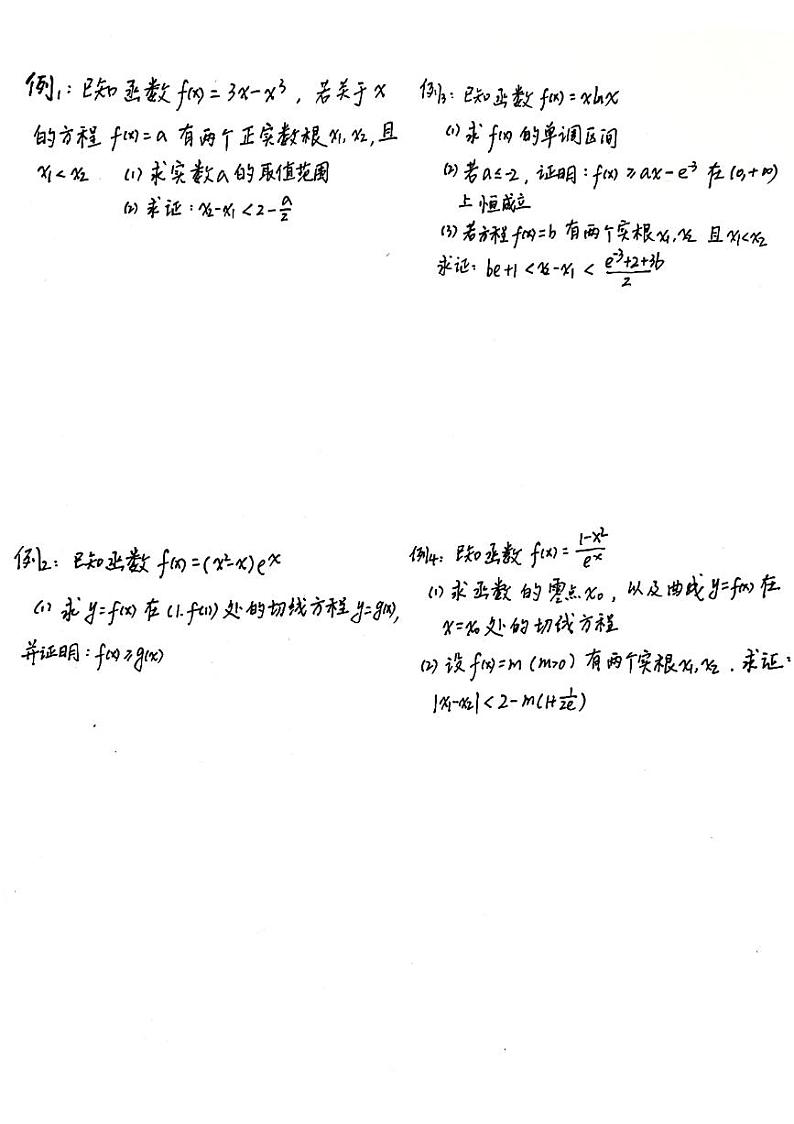 例1：已知函数 f(x)=3x-x³，若关于x
的方程 f(x)=a 有两个正实数根 x₁, x₂, 且
x₁<x₂ (1) 求实数a的取值范围
(2) 求证：x₂-x₁<2-a/2
例2：已知函数 f(x)=(x²-x)eˣ
(1) 求 y=f(x) 在 (1.f(1)) 处的切线方程 y=g(x),
并证明：f(x)≥g(x)
例3：已知函数 f(x)=xlnx
(1) 求 f(x) 的单调区间
(2) 若a≤-2, 证明：f(x)≥ax-e⁻³ 在 (0,+∞)
上恒成立
(3) 若方程 f(x)=b 有两个实根x₁,x₂ 且x₁<x₂
求证：be+1<x₂-x₁<(e⁻³+2+3b)/2
例4：已知函数 f(x)=(1-x²)/eˣ
(1) 求函数的零点x₀，以及曲线y=f(x)在
x=x₀处的切线方程
(2) 设 f(x)=m (m>0) 有两个实根x₁,x₂. 求证：
|x₁-x₂|<2-m(1+1/2e)